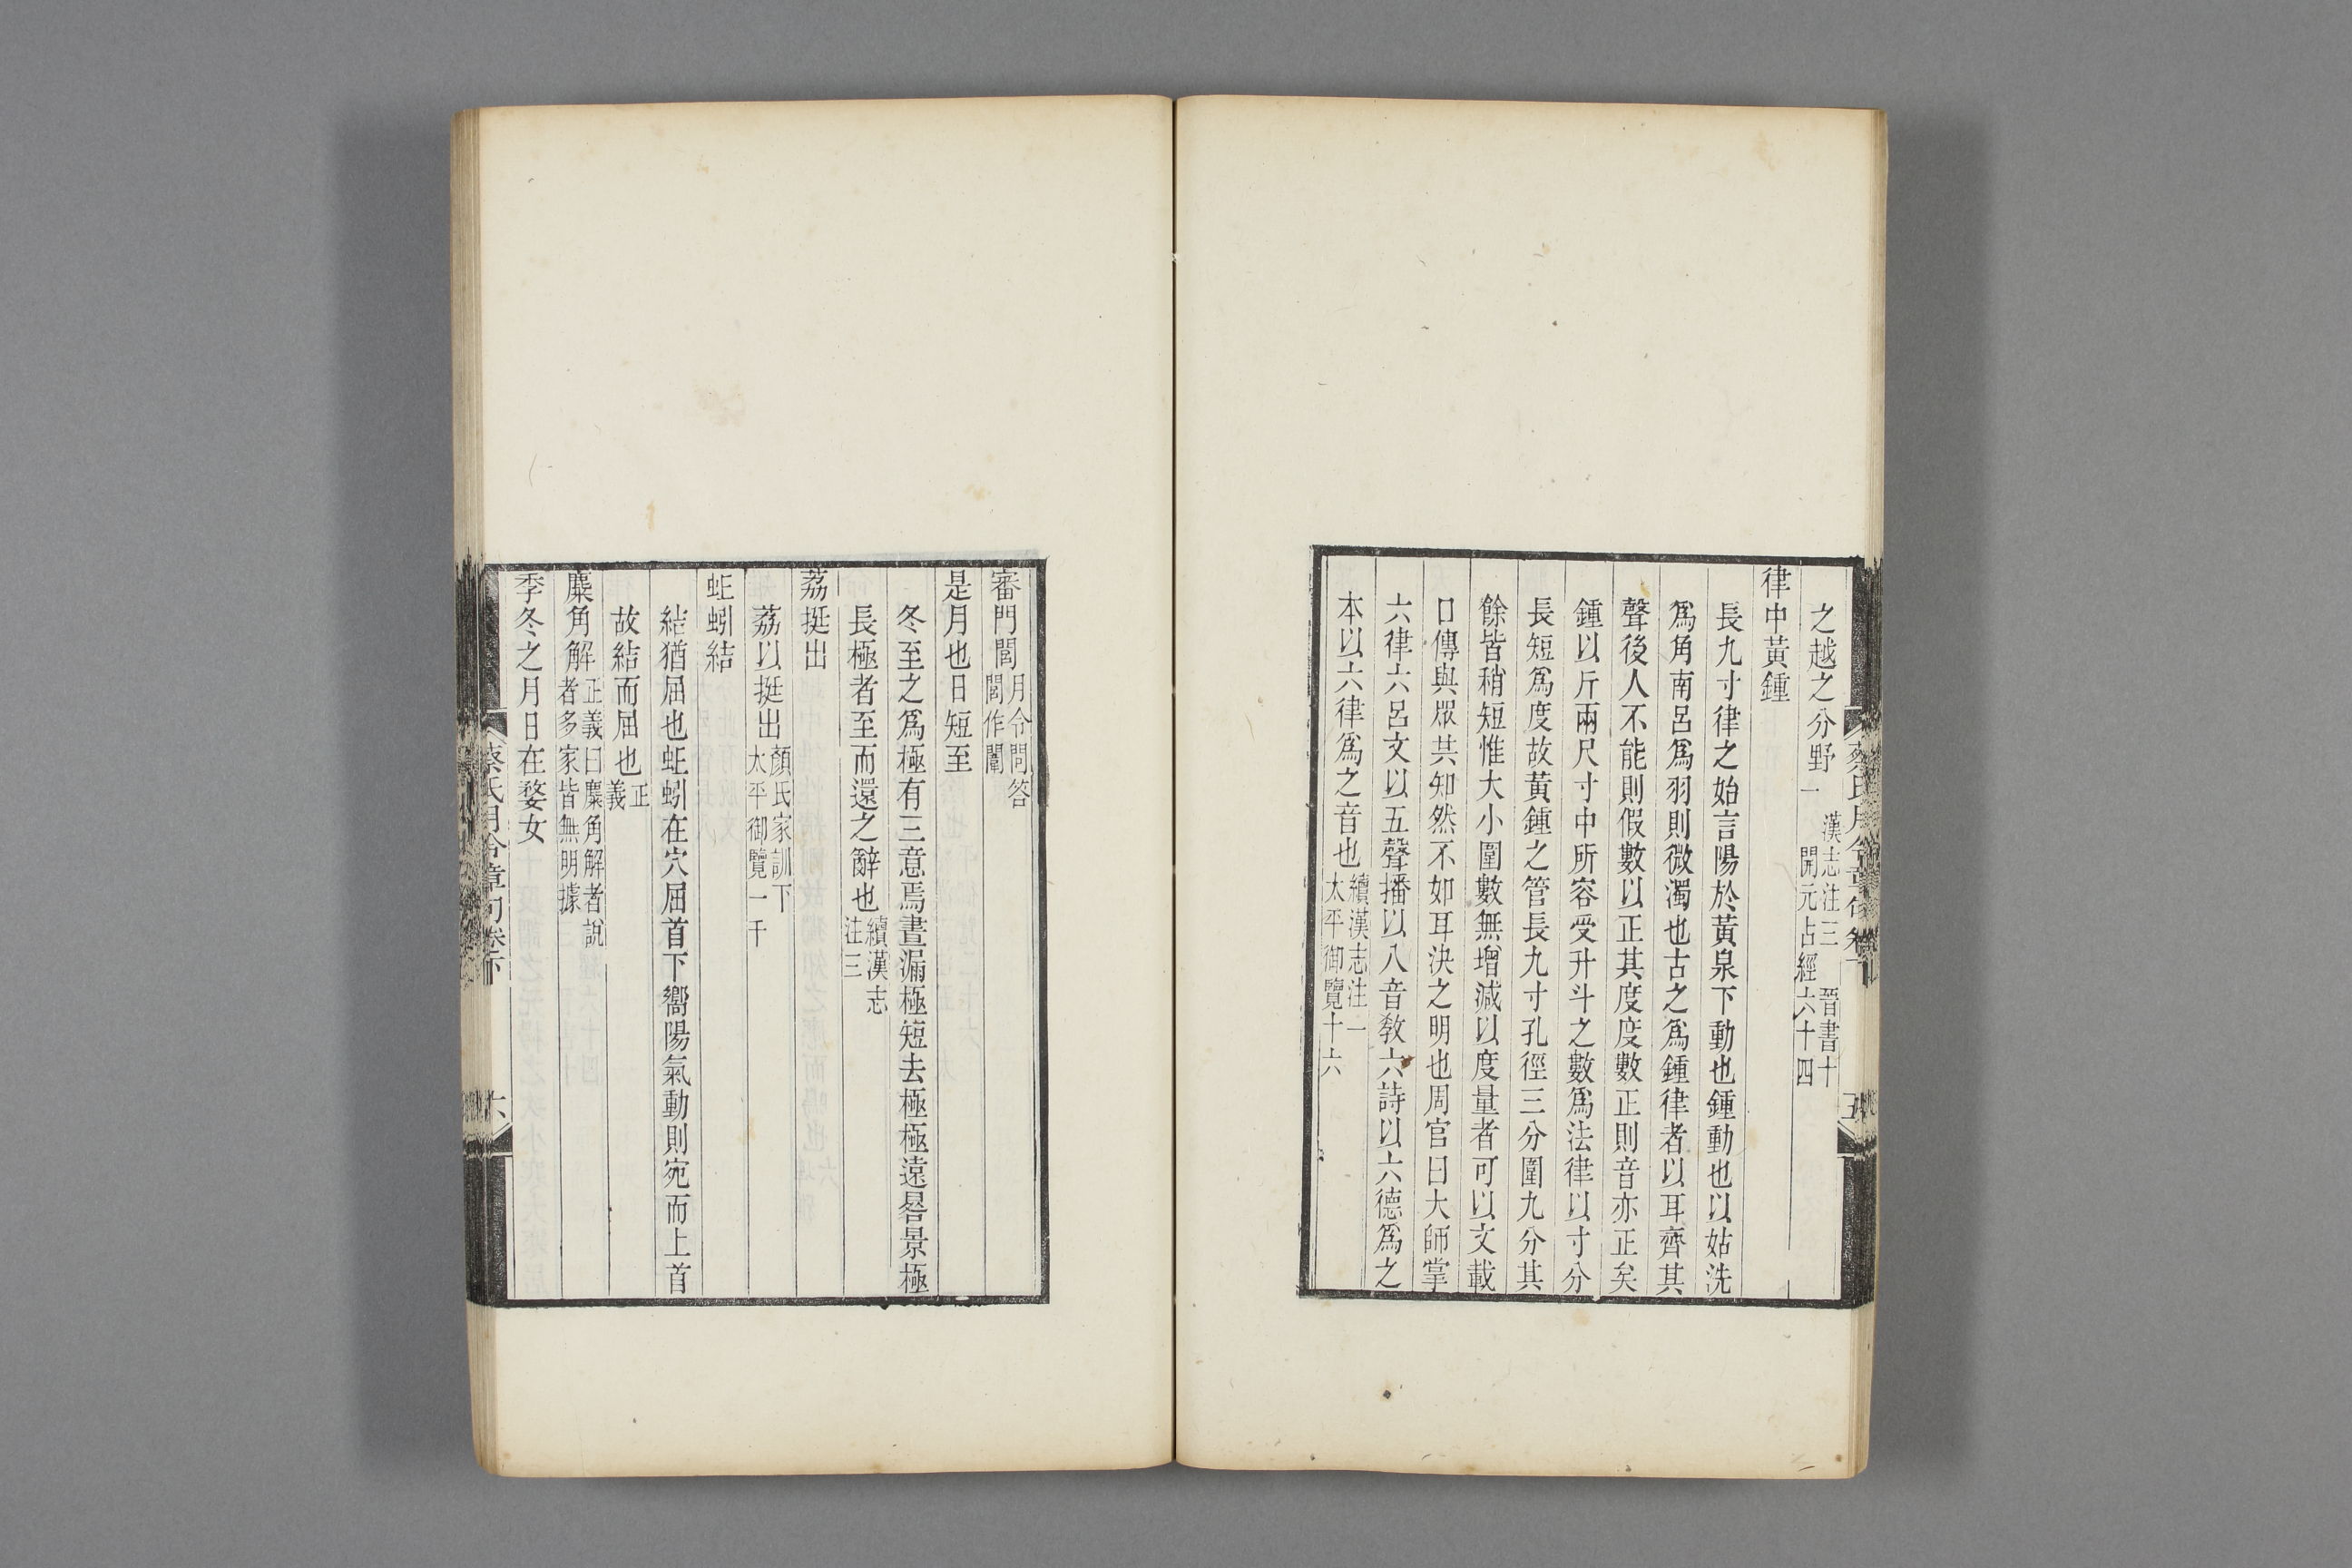 之越之分野一 漢志注三 晉書十 開元占經六十四
律中黃鍾
長九寸律之始言陽於黃泉下動也鍾動也以姑洗
爲角南呂爲羽則微濁也古之爲鍾律者以耳齊其
聲後人不能則假數以正其度度數正則音亦正矣
鍾以斤兩尺寸中所容受升斗之數爲法律以寸分
長短爲度故黃鍾之管長九寸孔徑三分圍九分其
餘皆稍短惟大小圍數無增減以度量者可以文載
口傳與眾共知然不如耳決之明也周官曰大師掌
六律六呂文以五聲播以八音教六詩以六德爲之
本以六律爲之音也續漢志注一太平御覽十六
審門閭月令問答閭作闈
是月也日短至
冬至之爲極有三意焉晝漏極短去極極遠晷景極
長極者至而還之辭也續漢志注三
荔挺出
荔以挺出顏氏家訓下太平御覽一千
蚯蚓結
結猶屈也蚯蚓在穴屈首下嚮陽氣動則宛而上首
故結而屈也正義
麋角解正義曰麋角解者說者多家皆無明據
季冬之月日在婺女
蔡氏月令章句卷下 六